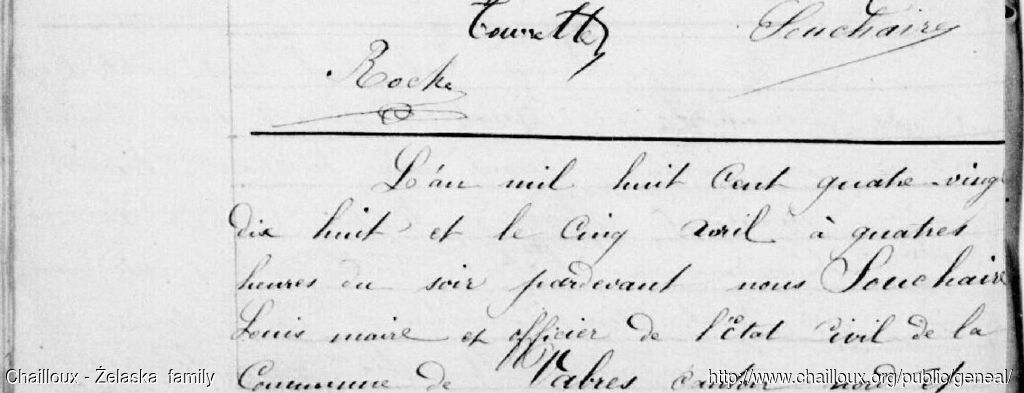 Tourrette Souchaire
Roche
L'an mil huit Cent quatre-vingt
dix huit et le Cinq avril à quatres
heures du soir pardevant nous Souchaire
Louis maire et officier de l'Etat Civil de la
Commune de Vabres canton nord et
Chailloux - Żelaska family http://www.chailloux.org/public/geneal/